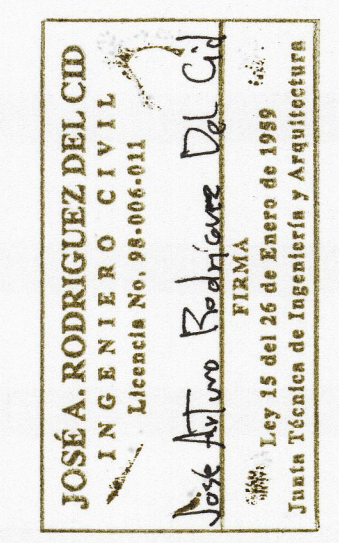 JOSÉ A. RODRIGUEZ DEL CID
INGENIERO CIVIL
Licencia No. 98-006-011
Jose Arturo Rodríguez Del Cid
FIRMA
Ley 15 del 26 de Enero de 1959
Junta Técnica de Ingeniería y Arquitectura